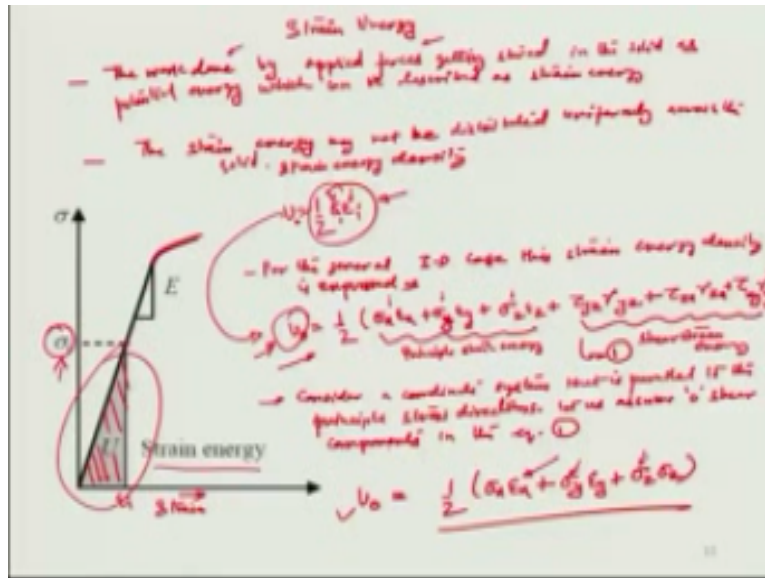 Strain Energy
– The work done by applied forces getting stored in the solid as
potential energy which can be described as strain energy
– The strain energy may not be distributed uniformly across the
solid. strain energy density
U₀ = 1/2 σᵢ εᵢ
σ
E
– For the general 3-D case this strain energy density
is expressed as
U₀ = 1/2 (σₓ εₓ + σ_y ε_y + σ_z ε_z +
Principle strain energy
① shear strain
energy
σᵢ
→ Consider a coordinate system that is parallel to the
principle stress directions. let us assume '0' shear
components in the eq. ①
U
Strain energy
εᵢ
strain
U₀ = 1/2 (σₓ εₓ + σ_y ε_y + σ_z